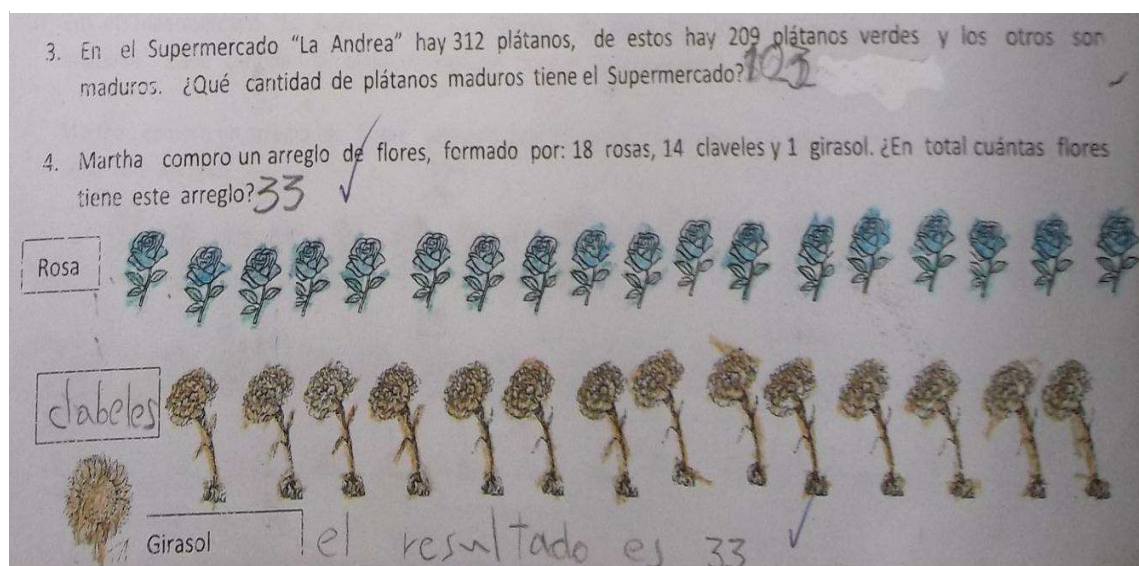 3. En el Supermercado “La Andrea” hay 312 plátanos, de estos hay 209 plátanos verdes y los otros son
maduros. ¿Qué cantidad de plátanos maduros tiene el Supermercado? 103
4. Martha compro un arreglo de flores, formado por: 18 rosas, 14 claveles y 1 girasol. ¿En total cuántas flores
tiene este arreglo? 33
Rosa
clabeles
Girasol el resultado es 33